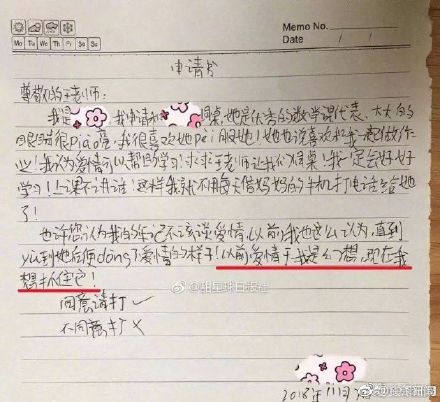 Memo No.
Mo Tu We Th Fr Sa Su
Date / /
申请书
尊敬的王老师:
我是 ,我申请和 同桌,她是优秀的数学课代表、大大的
眼睛很piào亮,我很喜欢她,pèi服她!她也说喜欢和我一起做作
业!我认为爱情可以帮助学习!求求王老师让我们同桌!我一定会好好
学习!上课不讲话!这样我就不用每天借妈妈的手机打电话给她
了!
也许您认为我的年纪不该谈爱情,以前,我也这么认为,直到
yù到她后便dǒng了爱情的样子!以前,爱情于我是幻想,现在我
想抓住它!
同意请打✓
不同意打×
2018年11月